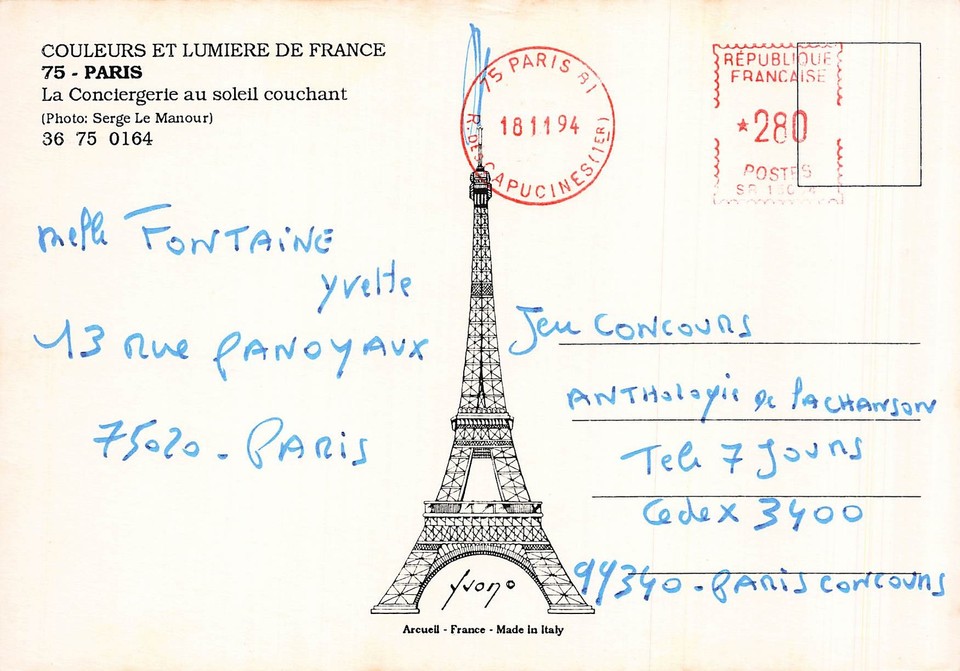 COULEURS ET LUMIERE DE FRANCE
75 - PARIS
La Conciergerie au soleil couchant
(Photo: Serge Le Manour)
36 75 0164
75 PARIS 81
18 11 94
R. DES CAPUCINES (1ER)
RÉPUBLIQUE
FRANÇAISE
*280
POSTES
Melle FONTAINE
yvette
13 Rue PANOYAUX
75020 - PARIS
Jeu CONCOURS
ANTHologie de lACHANSON
Tele 7 Jours
Cedex 3400
99340 - PARIS CONCOURS
yvon
Arcueil - France - Made in Italy